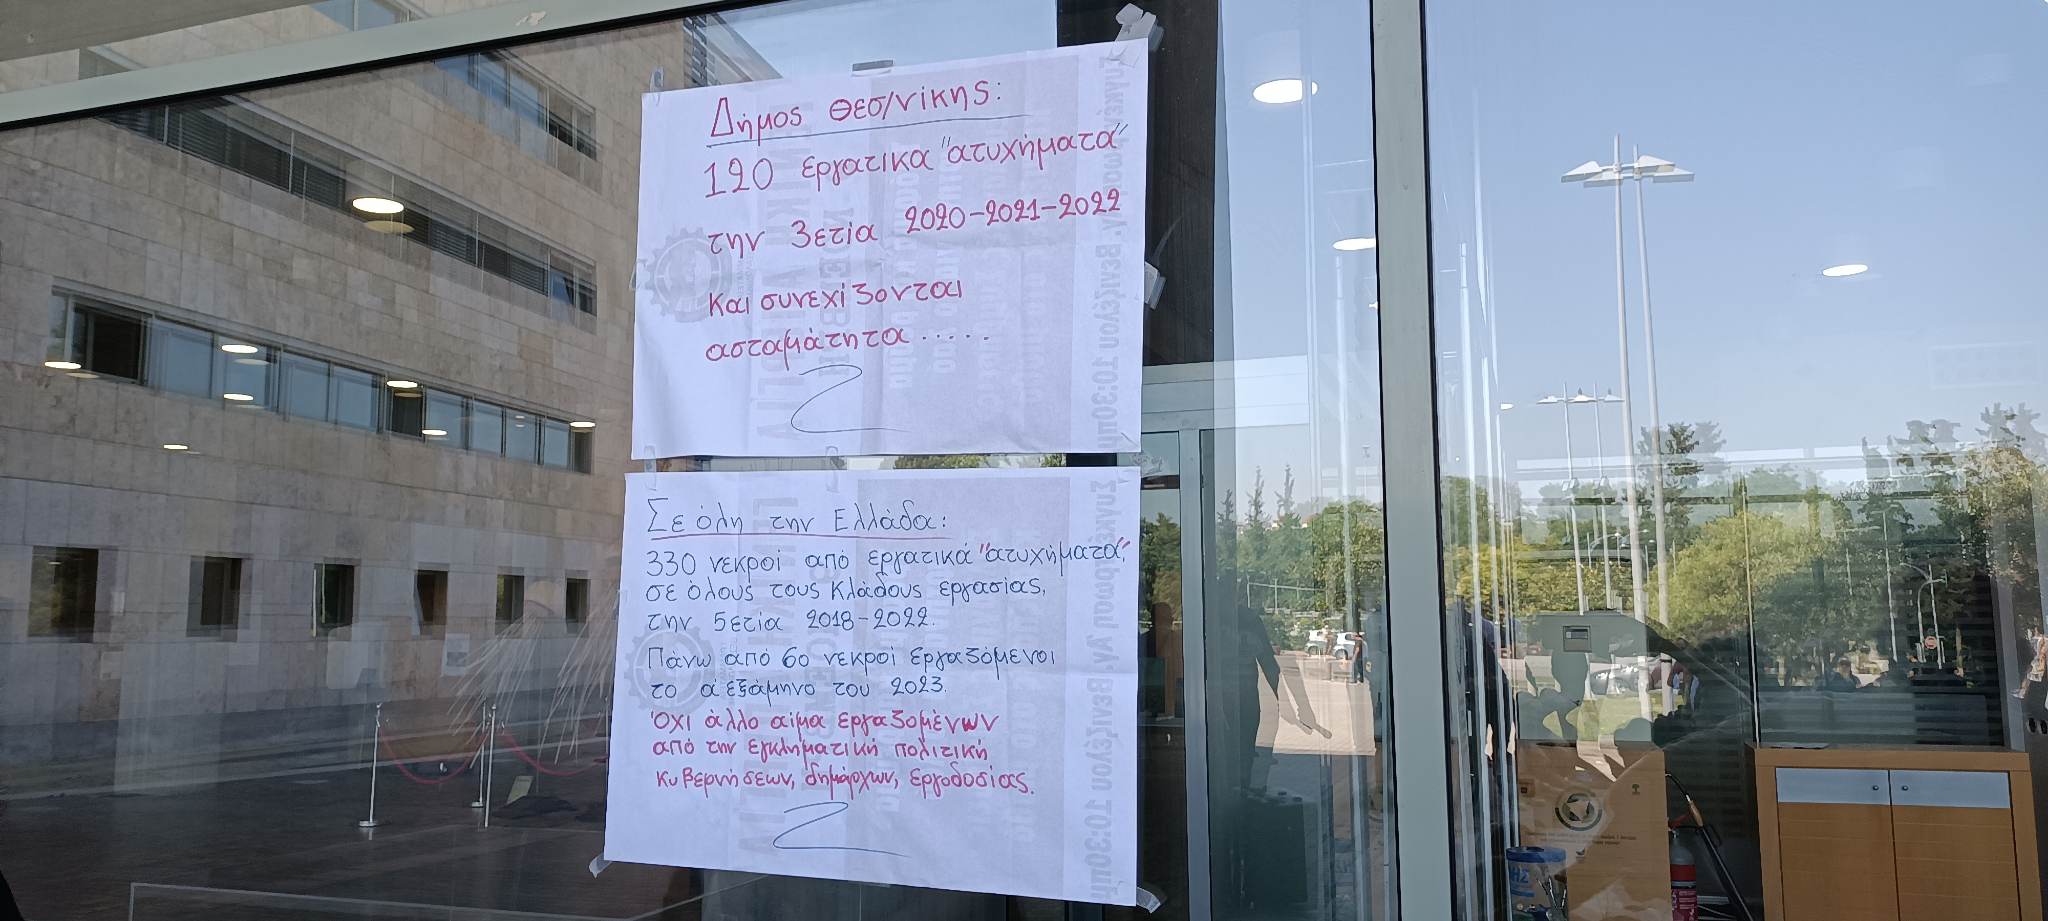 Δήμος Θεσ/νίκης:
120 εργατικα "ατυχήματα"
την 3ετία 2020-2021-2022
και συνεχίζονται
ασταμάτητα.....
Σε όλη την Ελλάδα:
330 νεκροί από εργατικά "ατυχήματα",
σε όλους τους κλάδους εργασίας,
την 5ετία 2018-2022.
Πάνω από 60 νεκροί εργαζόμενοι
το ά εξάμηνο του 2023.
Όχι άλλο αίμα εργαζομένων
από την εγκληματική πολιτική
κυβερνήσεων, δημάρχων, εργοδοσίας.